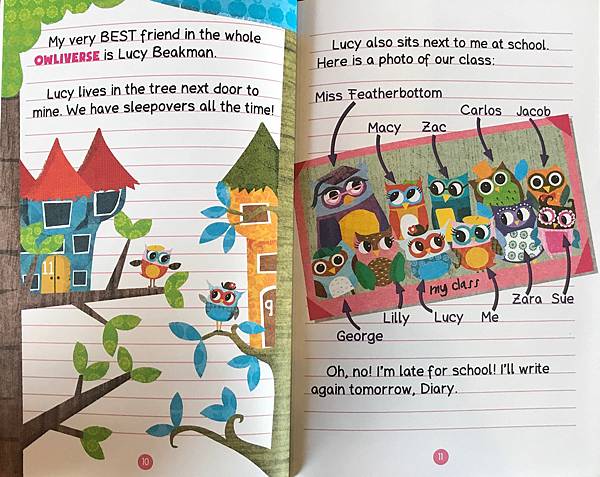 My very BEST friend in the whole
OWLIVERSE is Lucy Beakman.
Lucy lives in the tree next door to
mine. We have sleepovers all the time!
11
9
10
Lucy also sits next to me at school.
Here is a photo of our class:
Miss Featherbottom
Carlos Jacob
Macy Zac
my class
Zara Sue
Lilly Lucy Me
George
Oh, no! I'm late for school! I'll write
again tomorrow, Diary.
11